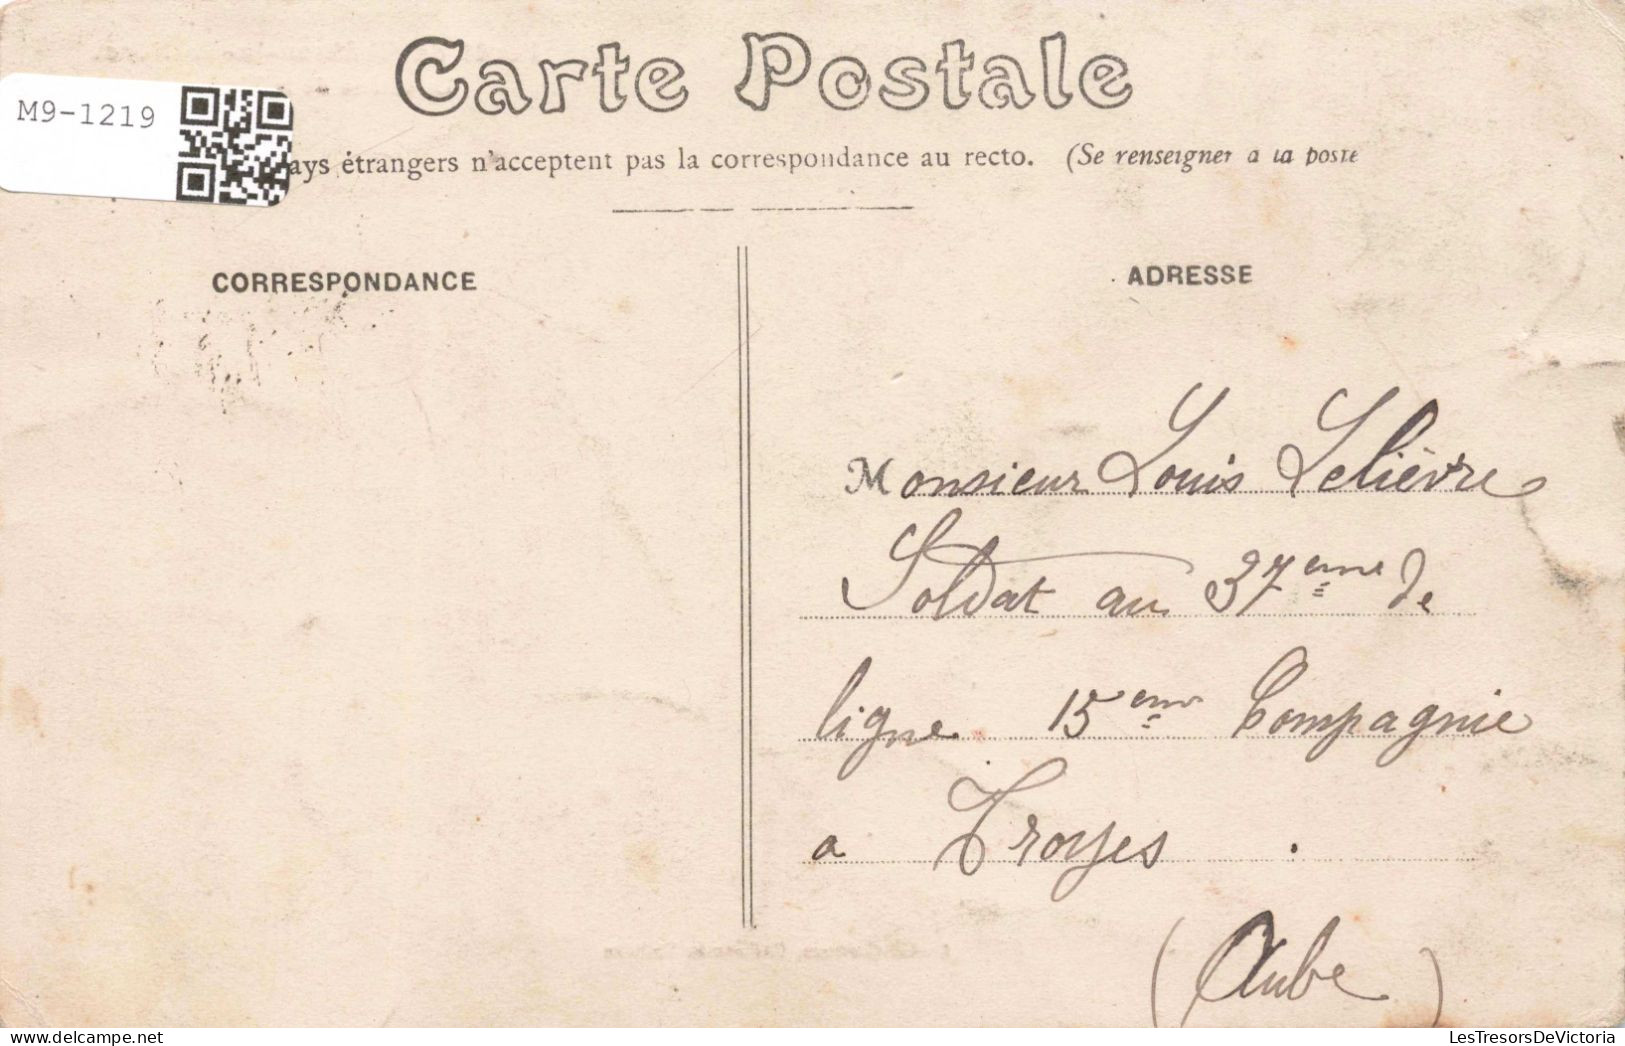 Carte Postale
M9-1219
ays étrangers n'acceptent pas la correspondance au recto. (Se renseigner a la poste
CORRESPONDANCE
ADRESSE
Monsieur Louis Lelièvre
Soldat au 37eme de
ligne 15eme Compagnie
a Troyes .
(Aube)
LesTresorsDeVictoria